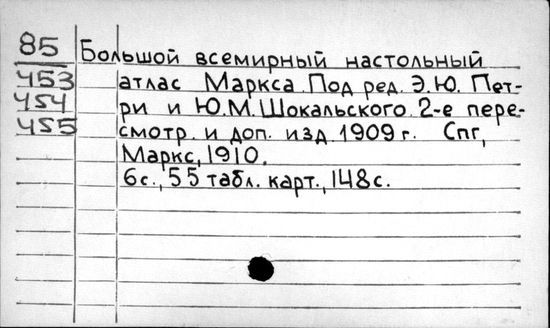 85 Большой всемирный настольный
453 атлас Маркса. Под ред. Э.Ю. Пет-
454 ри и Ю.М. Шокальского. 2-е пере-
455 смотр. и доп. изд. 1909 г. Спг,
Маркс, 1910.
6с., 55 табл. карт., 148с.